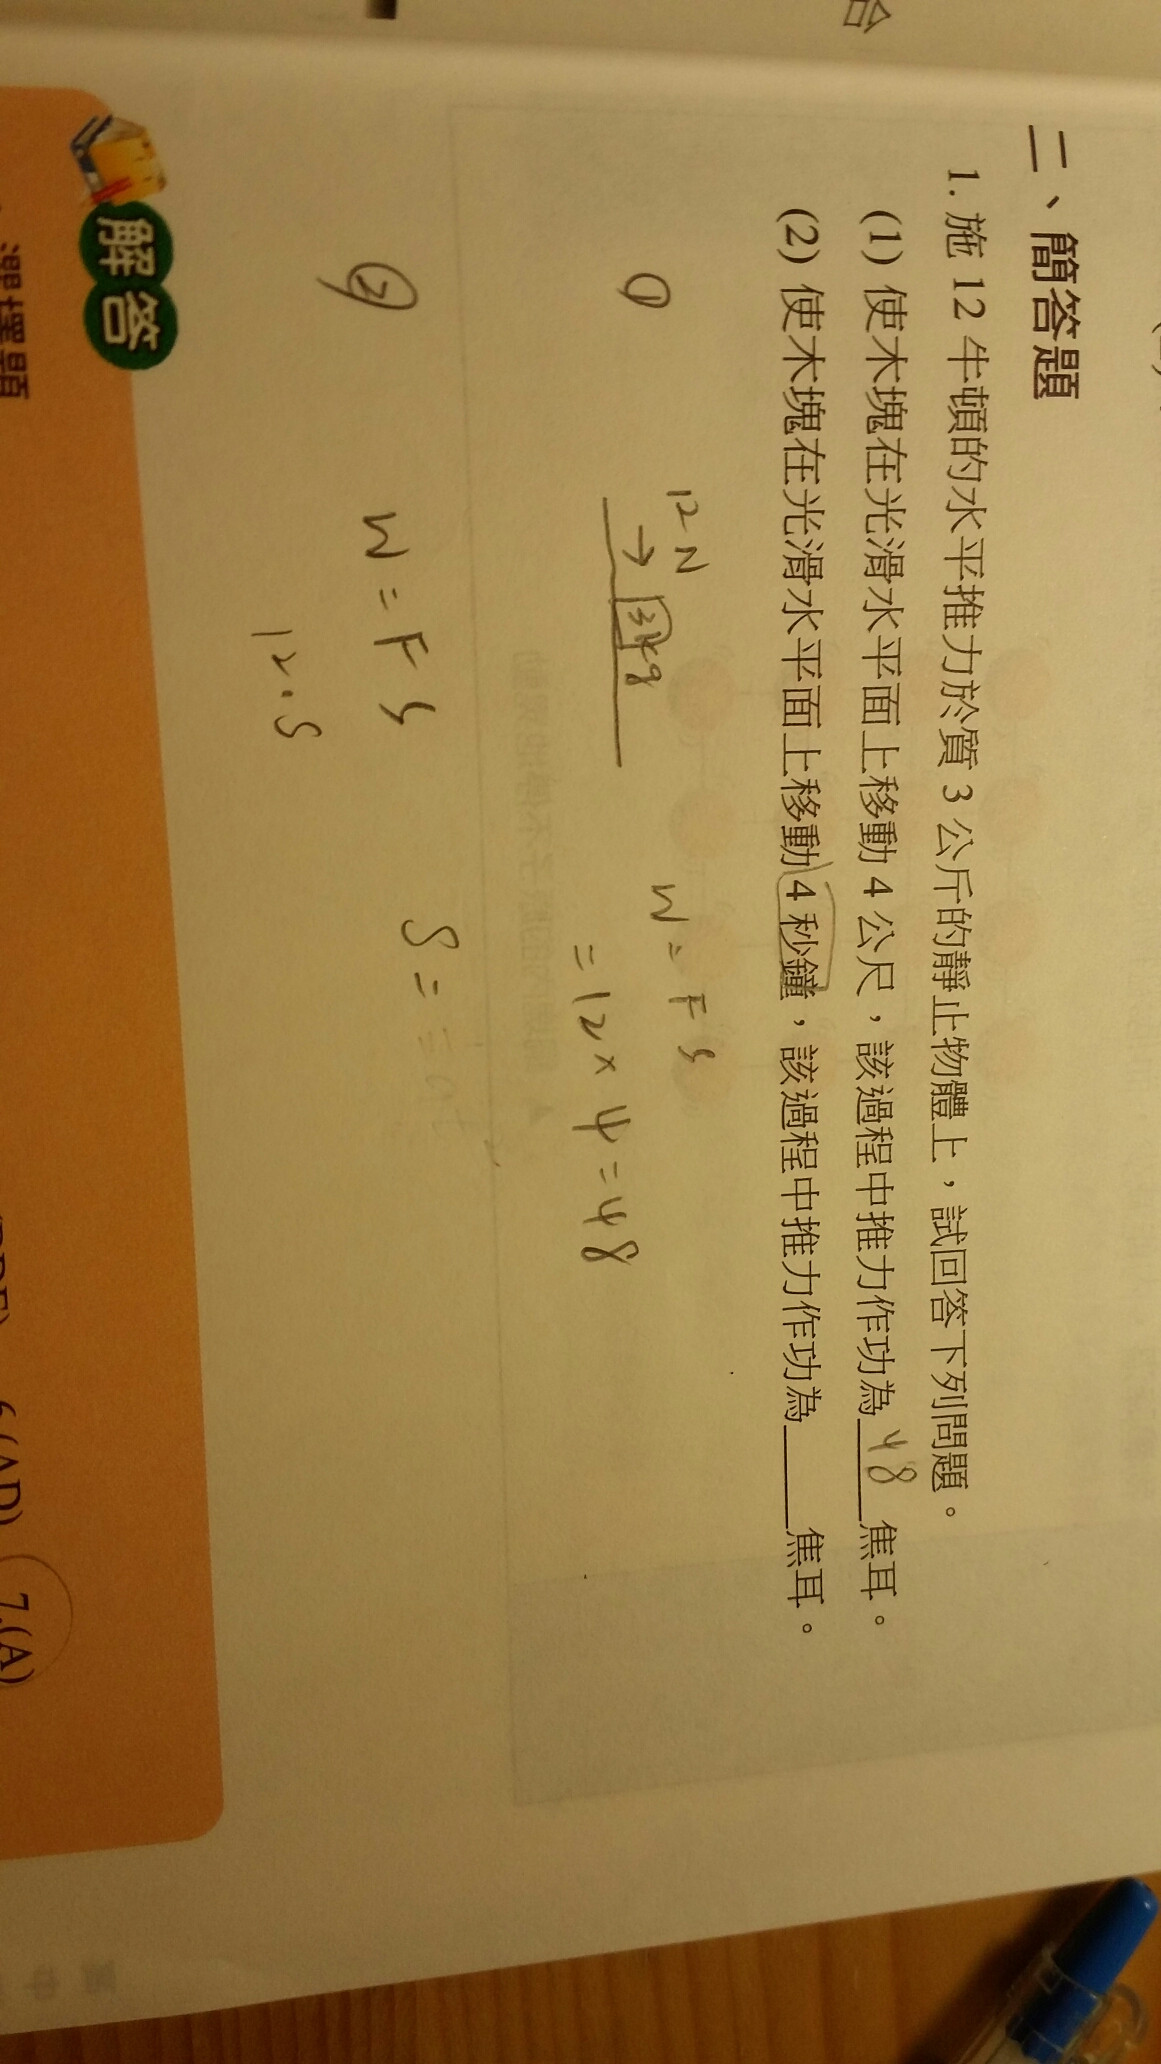 合
二、簡答題
1. 施 12 牛頓的水平推力於質 3 公斤的靜止物體上，試回答下列問題。
(1) 使木塊在光滑水平面上移動 4 公尺，該過程中推力作功為 48 焦耳。
(2) 使木塊在光滑水平面上移動 4 秒鐘，該過程中推力作功為____焦耳。
①
12N
→ 3kg
W = F S
= 12 × 4 = 48
②
W = F S
12 · S
S =
解答
選擇題
6.(AD) 7.(A)